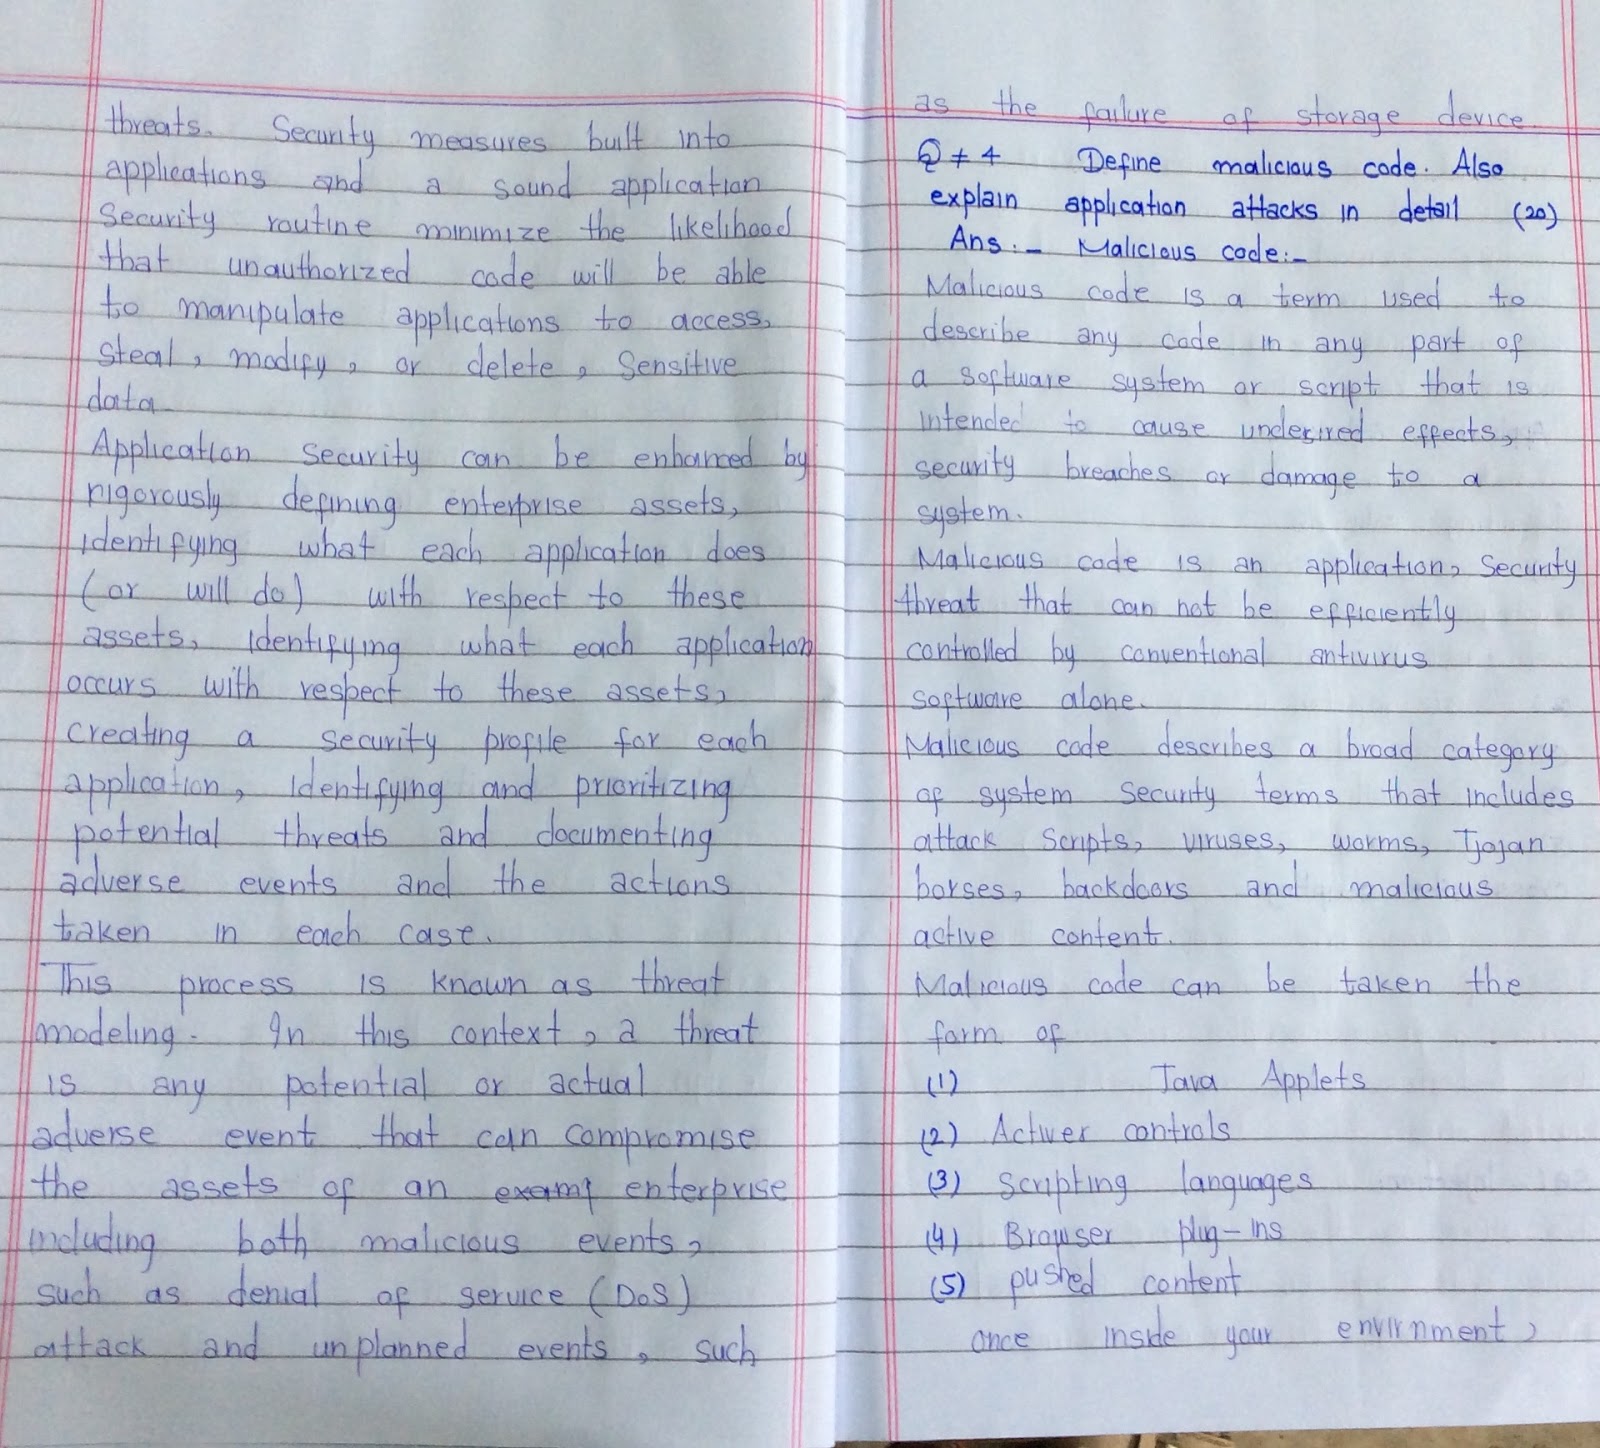 threats. Security measures built into
applications and a sound application
Security routine minimize the likelihood
that unauthorized code will be able
to manipulate applications to access,
steal, modify, or delete, Sensitive
data
Application security can be enhanced by
rigorously defining enterprise assets,
identifying what each application does
(or will do) with respect to these
assets, identifying what each application
occurs with respect to these assets,
creating a security profile for each
application, identifying and prioritizing
potential threats and documenting
adverse events and the actions
taken in each case.
This process is known as threat
modeling. In this context, a threat
is any potential or actual
adverse event that can compromise
the assets of an enterprise
including both malicious events,
such as denial of service (DoS)
attack and unplanned events, such
as the failure of storage device
Q # 4 Define malicious code. Also
explain application attacks in detail (20)
Ans :- Malicious code:-
Malicious code is a term used to
describe any code in any part of
a software system or script that is
intended to cause undesired effects,
security breaches or damage to a
system.
Malicious code is an application, Security
threat that can not be efficiently
controlled by conventional antivirus
software alone.
Malicious code describes a broad category
of system security terms that includes
attack Scripts, viruses, worms, Tjojan
horses, backdoors and malicious
active content.
Malicious code can be taken the
form of
(1) Java Applets
(2) Activer controls
(3) Scripting languages
(4) Browser plug-ins
(5) pushed content
once inside your envirnment,